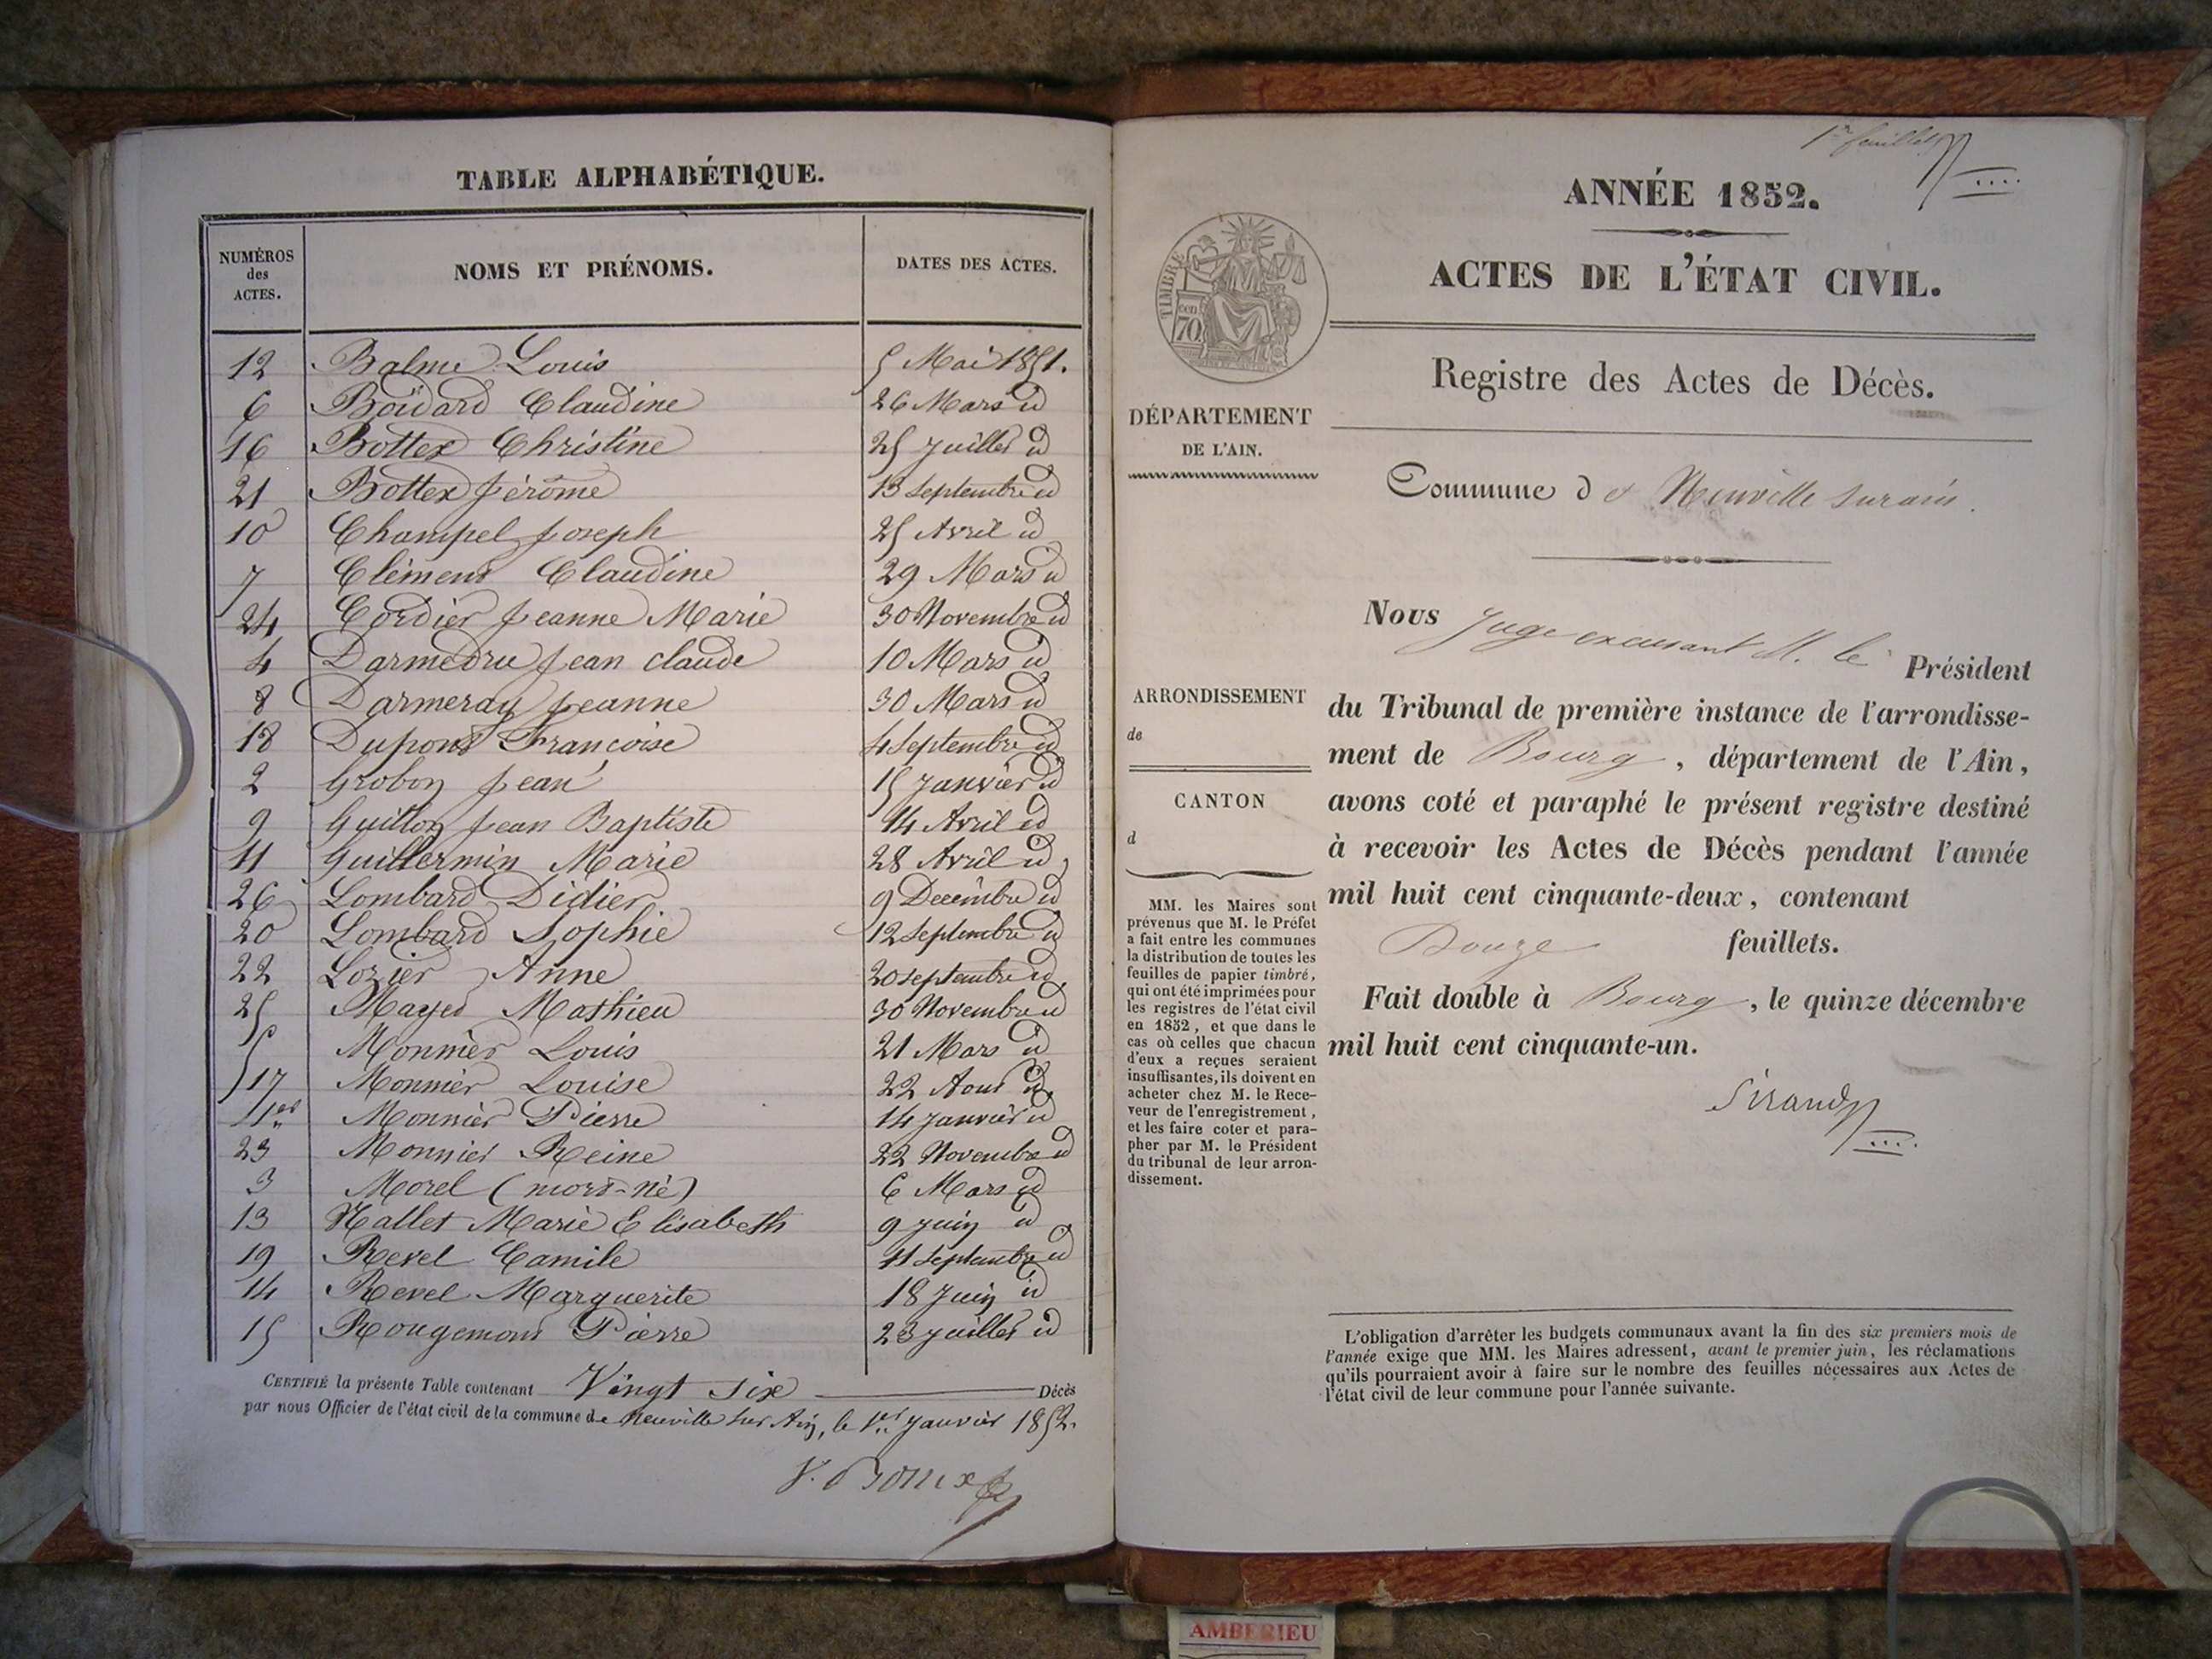 TABLE ALPHABÉTIQUE.
NUMÉROS des ACTES. NOMS ET PRÉNOMS. DATES DES ACTES.
12 Balme Louis 5 Mai 1851.
6 Boïdard Claudine 26 Mars id
16 Bottex Christine 25 Juillet id
21 Bottex Jérôme 13 Septembre id
10 Champel Joseph 25 Avril id
7 Clément Claudine 29 Mars id
24 Cordier Jeanne Marie 30 Novembre id
4 Darmedru Jean claude 10 Mars id
8 Darmeray Jeanne 30 Mars id
18 Dupont Françoise 4 Septembre id
2 Grobon Jean 15 Janvier id
9 Guitton Jean Baptiste 14 Avril id
11 Guillermin Marie 28 Avril id
26 Lombard Didier 9 Decembre id
20 Lombard Sophie 12 Septembre id
22 Lozier Anne 20 septembre id
25 Mayet Mathieu 30 Novembre id
5 Monnier Louis 21 Mars id
17 Monnier Louise 22 Aout id
1er Monnier Pierre 14 Janvier id
23 Monnier Reine 22 Novembre id
3 Morel (mort-né) 6 Mars id
13 Nallet Marie Elisabeth 9 Juin id
19 Revel Camile 11 Septembre id
14 Revel Marguerite 18 Juin id
15 Rougemont Pierre 23 Juillet id
CERTIFIÉ la présente Table contenant Vingt six Décès
par nous Officier de l'état civil de la commune de Neuville sur Ain, le 1er Janvier 1852.
1er feuillet
ANNÉE 1852.
ACTES DE L'ÉTAT CIVIL.
TIMBRE
70
Registre des Actes de Décès.
DÉPARTEMENT
DE L'AIN.
Commune de Neuville sur ain.
Nous Juge excusant M. le Président
du Tribunal de première instance de l'arrondisse-
ment de Bourg, département de l'Ain,
avons coté et paraphé le présent registre destiné
à recevoir les Actes de Décès pendant l'année
mil huit cent cinquante-deux, contenant
Douze feuillets.
Fait double à Bourg, le quinze décembre
mil huit cent cinquante-un.
Sirand
ARRONDISSEMENT
de
CANTON
d
MM. les Maires sont
prévenus que M. le Préfet
a fait entre les communes
la distribution de toutes les
feuilles de papier timbré,
qui ont été imprimées pour
les registres de l'état civil
en 1852, et que dans le
cas où celles que chacun
d'eux a reçues seraient
insuffisantes, ils doivent en
acheter chez M. le Rece-
veur de l'enregistrement,
et les faire coter et para-
pher par M. le Président
du tribunal de leur arron-
dissement.
L'obligation d'arrêter les budgets communaux avant la fin des six premiers mois de
l'année exige que MM. les Maires adressent, avant le premier juin, les réclamations
qu'ils pourraient avoir à faire sur le nombre des feuilles nécessaires aux Actes de
l'état civil de leur commune pour l'année suivante.
AMBERIEU